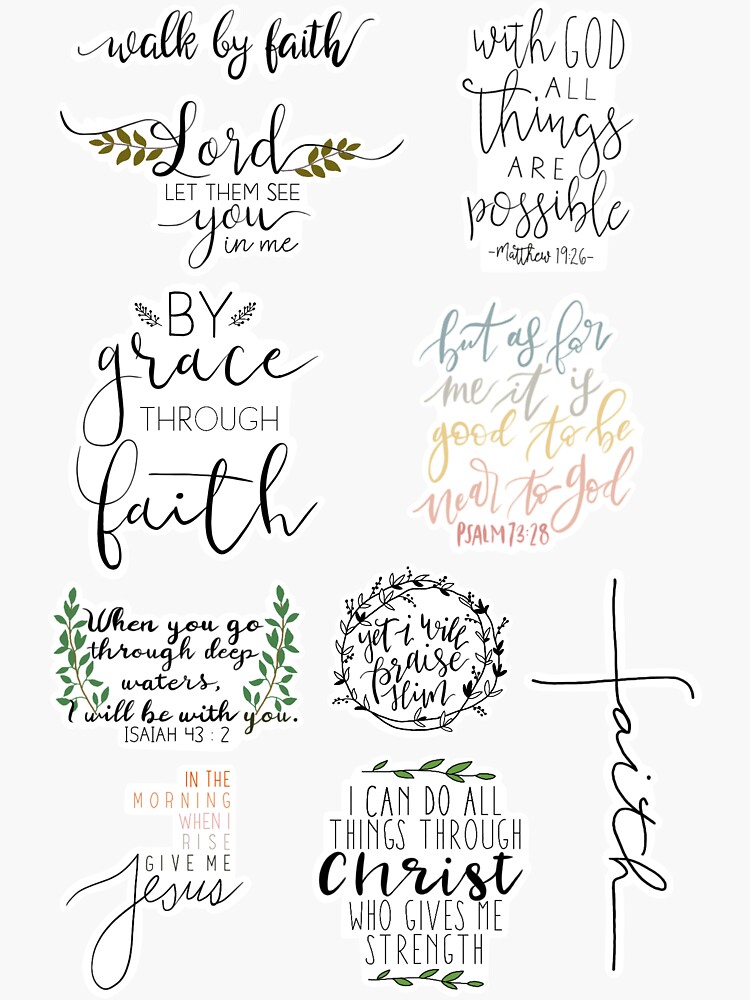 walk by faith
Lord
LET THEM SEE
you
in me
with GOD
ALL
Things
ARE
possible
-Matthew 19:26-
BY
grace
THROUGH
faith
but as for
me it is
good to be
near to god
PSALM 73:28
When you go
through deep
waters,
I will be with you.
ISAIAH 43 : 2
yet i will
praise
Him
faith
IN THE
MORNING
WHEN I
RISE
GIVE ME
Jesus
I CAN DO ALL
THINGS THROUGH
Christ
WHO GIVES ME
STRENGTH